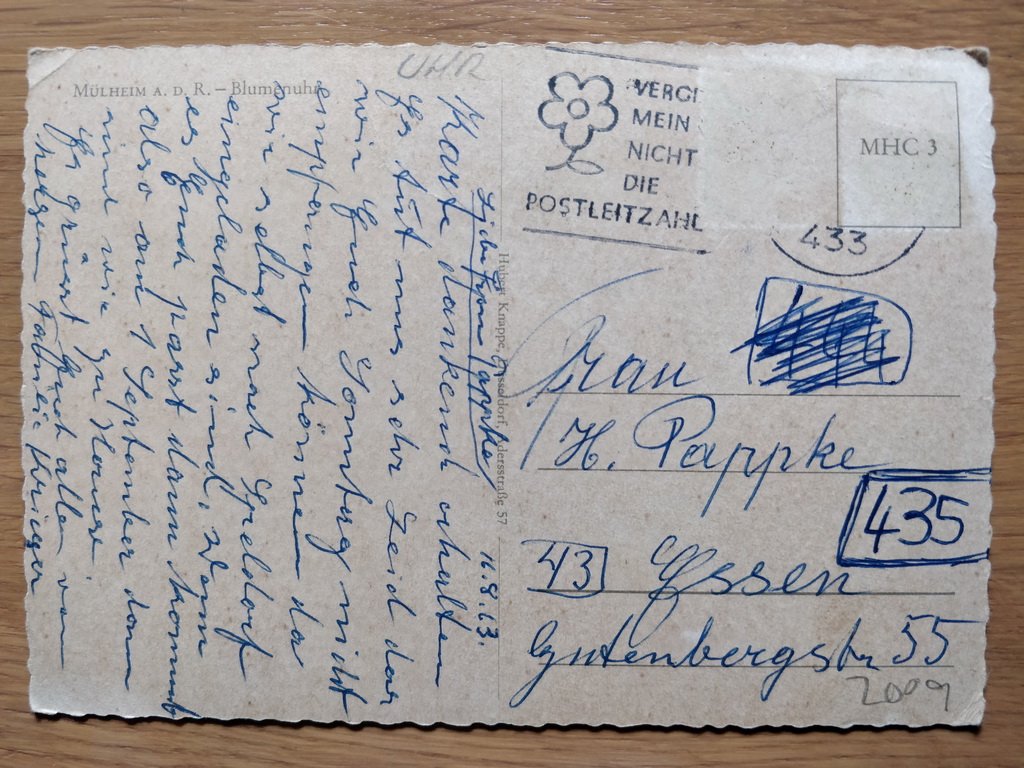 MÜLHEIM A. D. R. – Blumenuhr
UHR
16.8.63.
Liebe Frau Pappke
Karte dankend erhalten
Es tut uns sehr Leid das
wir Euch Sonntag nicht
empfangen können da
wir selbst nach Geldorf
eingeladen sind, wenn
es Euch passt dann kommt
also am 1 September dann
sind wir zu Hause
Es grüsst Euch allen von
Familie Krieger
Hubert Knappe, Düsseldorf, Adersstraße 57
VERGI
MEIN
NICHT
DIE
POSTLEITZAHL
MHC 3
433
Frau
H. Pappke
435
43 Essen
Gutenbergstr 55
2009